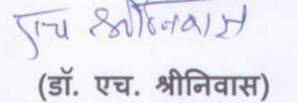 एच श्रीनिवास
(डॉ. एच. श्रीनिवास)